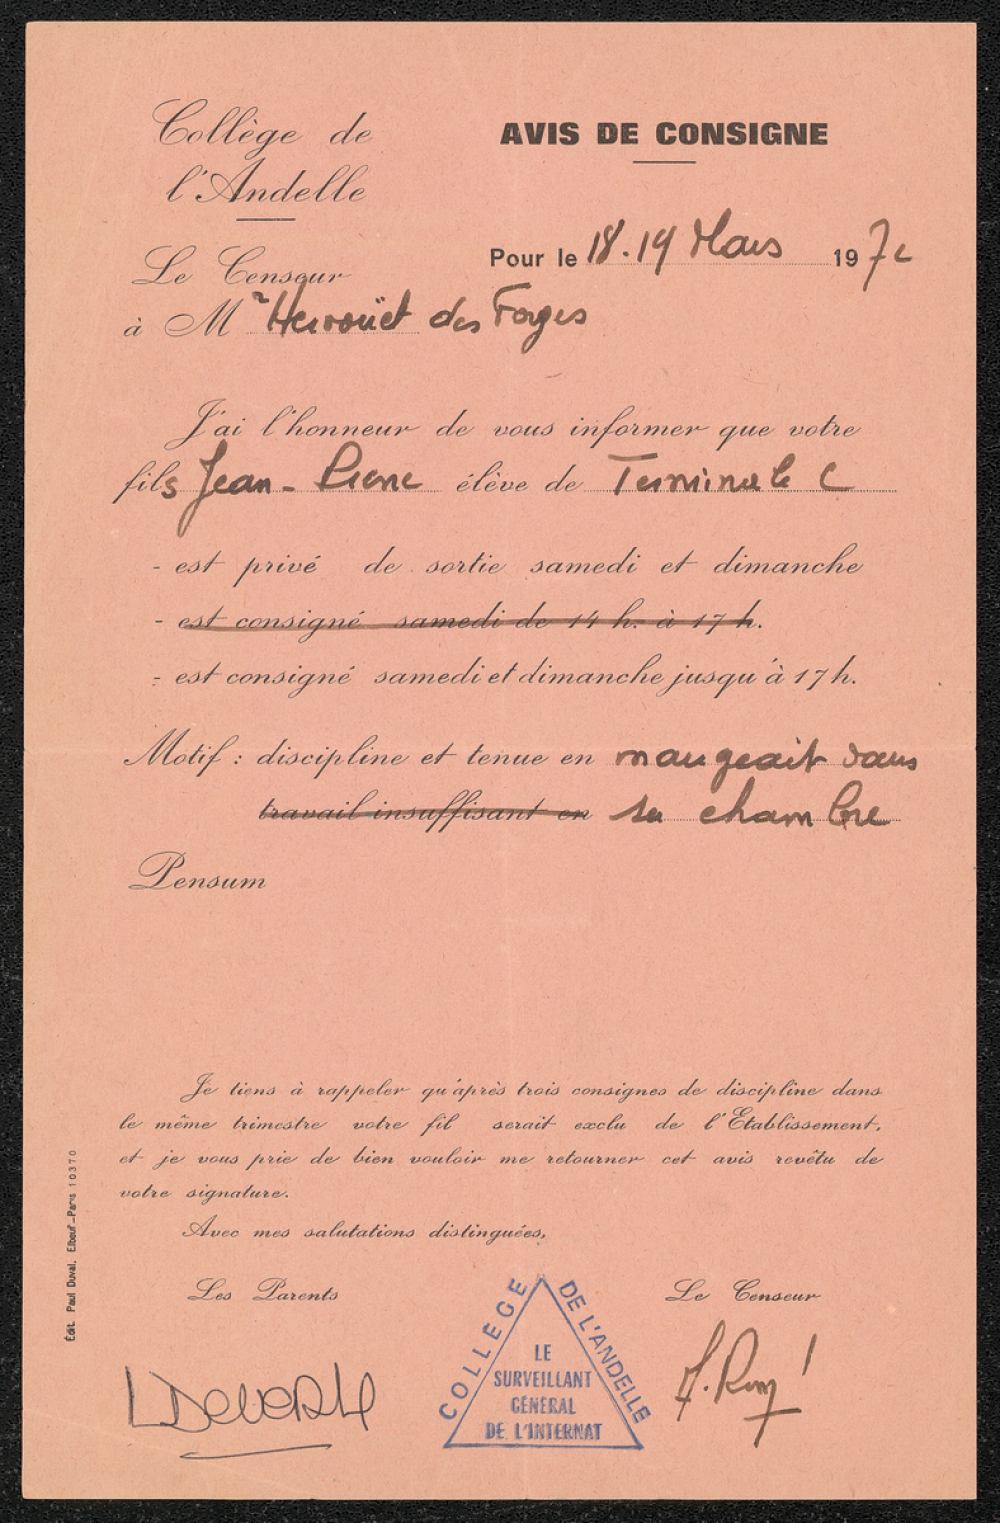 Collège de
l'Andelle
AVIS DE CONSIGNE
Pour le 18.19 Mars 1972
Le Censeur
à Mr Hervouët des Forges
J'ai l'honneur de vous informer que votre
fils Jean-Pierre élève de Terminale C
- est privé de sortie samedi et dimanche
- est consigné samedi de 14 h. à 17 h.
- est consigné samedi et dimanche jusqu'à 17 h.
Motif : discipline et tenue en mangeait dans
travail insuffisant en sa chambre
Pensum
Je tiens à rappeler qu'après trois consignes de discipline dans
le même trimestre votre fil serait exclu de l'Etablissement,
et je vous prie de bien vouloir me retourner cet avis revêtu de
votre signature.
Avec mes salutations distinguées,
Les Parents
Le Censeur
COLLEGE DE L'ANDELLE
LE
SURVEILLANT
GÉNÉRAL
DE L'INTERNAT
Édit. Paul Duval, Elbeuf-Paris 10370